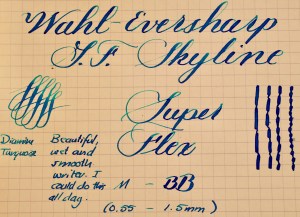 Wahl-Eversharp
S.F. Skyline
Super
Flex
Diamine
Turquoise
Beautiful,
wet and
smooth
writer. I
could do this
all day.
M - BB
(0.55 - 1.5mm)